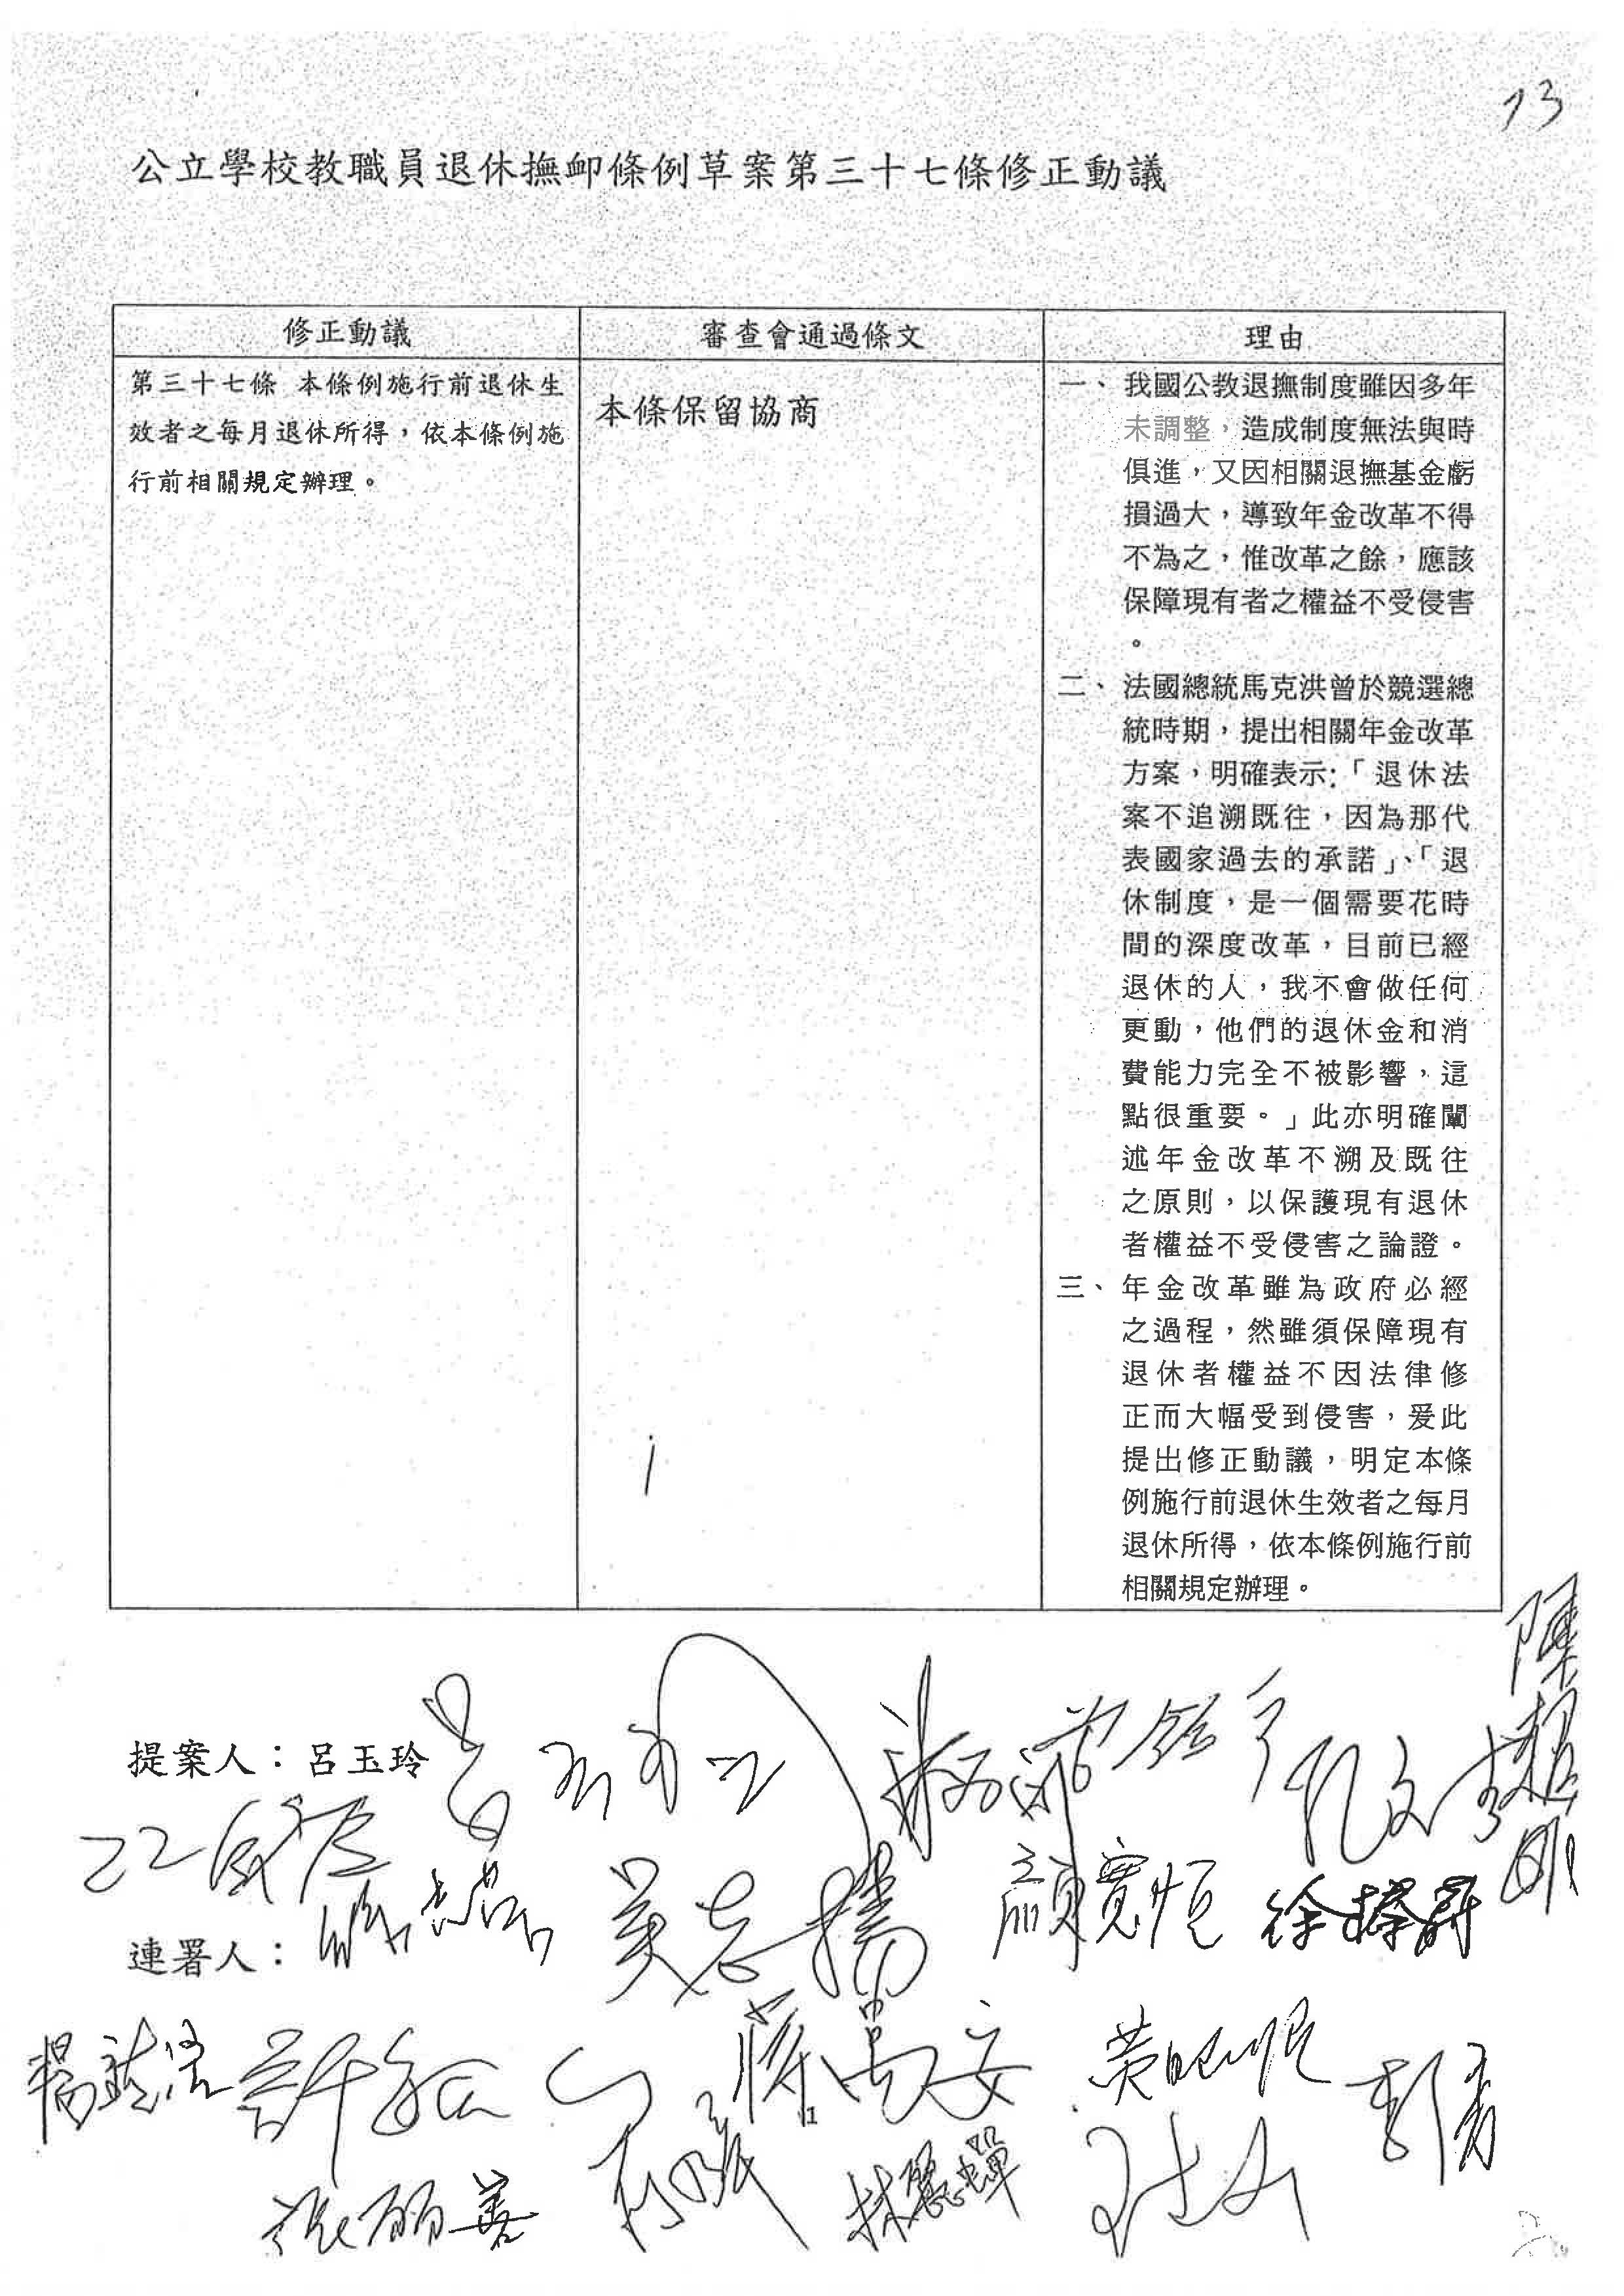 73
公立學校教職員退休撫卹條例草案第三十七條修正動議
修正動議
審查會通過條文
理由
第三十七條 本條例施行前退休生
效者之每月退休所得，依本條例施
行前相關規定辦理。
本條保留協商
一、我國公教退撫制度雖因多年
未調整，造成制度無法與時
俱進，又因相關退撫基金虧
損過大，導致年金改革不得
不為之，惟改革之餘，應該
保障現有者之權益不受侵害
。
二、法國總統馬克洪曾於競選總
統時期，提出相關年金改革
方案，明確表示:「退休法
案不追溯既往，因為那代
表國家過去的承諾」、「退
休制度，是一個需要花時
間的深度改革，目前已經
退休的人，我不會做任何
更動，他們的退休金和消
費能力完全不被影響，這
點很重要。」此亦明確闡
述年金改革不溯及既往
之原則，以保護現有退休
者權益不受侵害之論證。
三、年金改革雖為政府必經
之過程，然雖須保障現有
退休者權益不因法律修
正而大幅受到侵害，爰此
提出修正動議，明定本條
例施行前退休生效者之每月
退休所得，依本條例施行前
相關規定辦理。
提案人：呂玉玲
陳超明
孔文
江啟臣
吳志揚
顏寬恒
徐榛蔚
連署人：
蔣萬安
黃昭順
林麗蟬
1